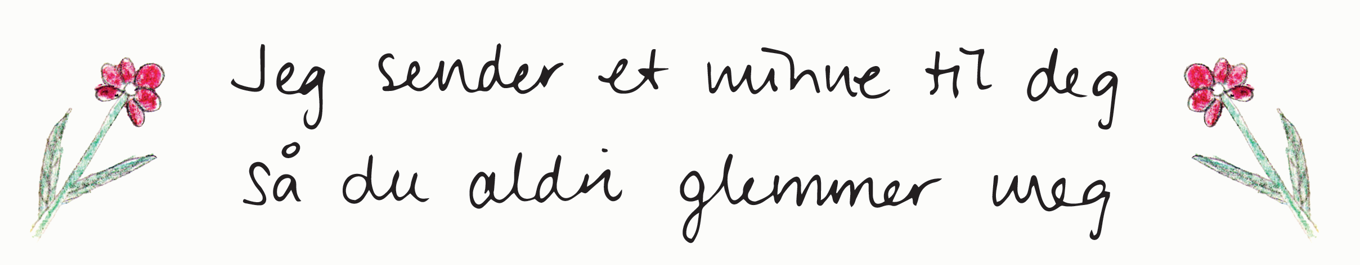 Jeg sender et minne til deg
så du aldri glemmer meg